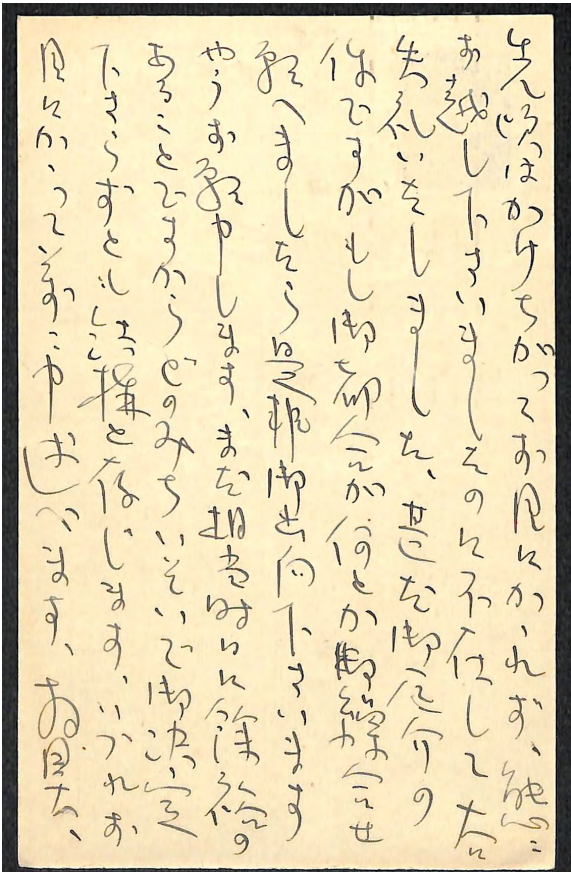 先頃はかけちがつてお目にかゝれず、態々
お越し下さいましたのに不在して大に
失礼いたしました、甚だ御厄介の
件ですがもし御都合が何とか御繰合せ
願へましたら是非御出向下さいます
やうお願申します、まだ相当時日に餘裕の
あることですからどのみちいそいで御決定
下さらずとも結構と存じます、いづれお
目にかゝつて萬々申述べます、お返事、